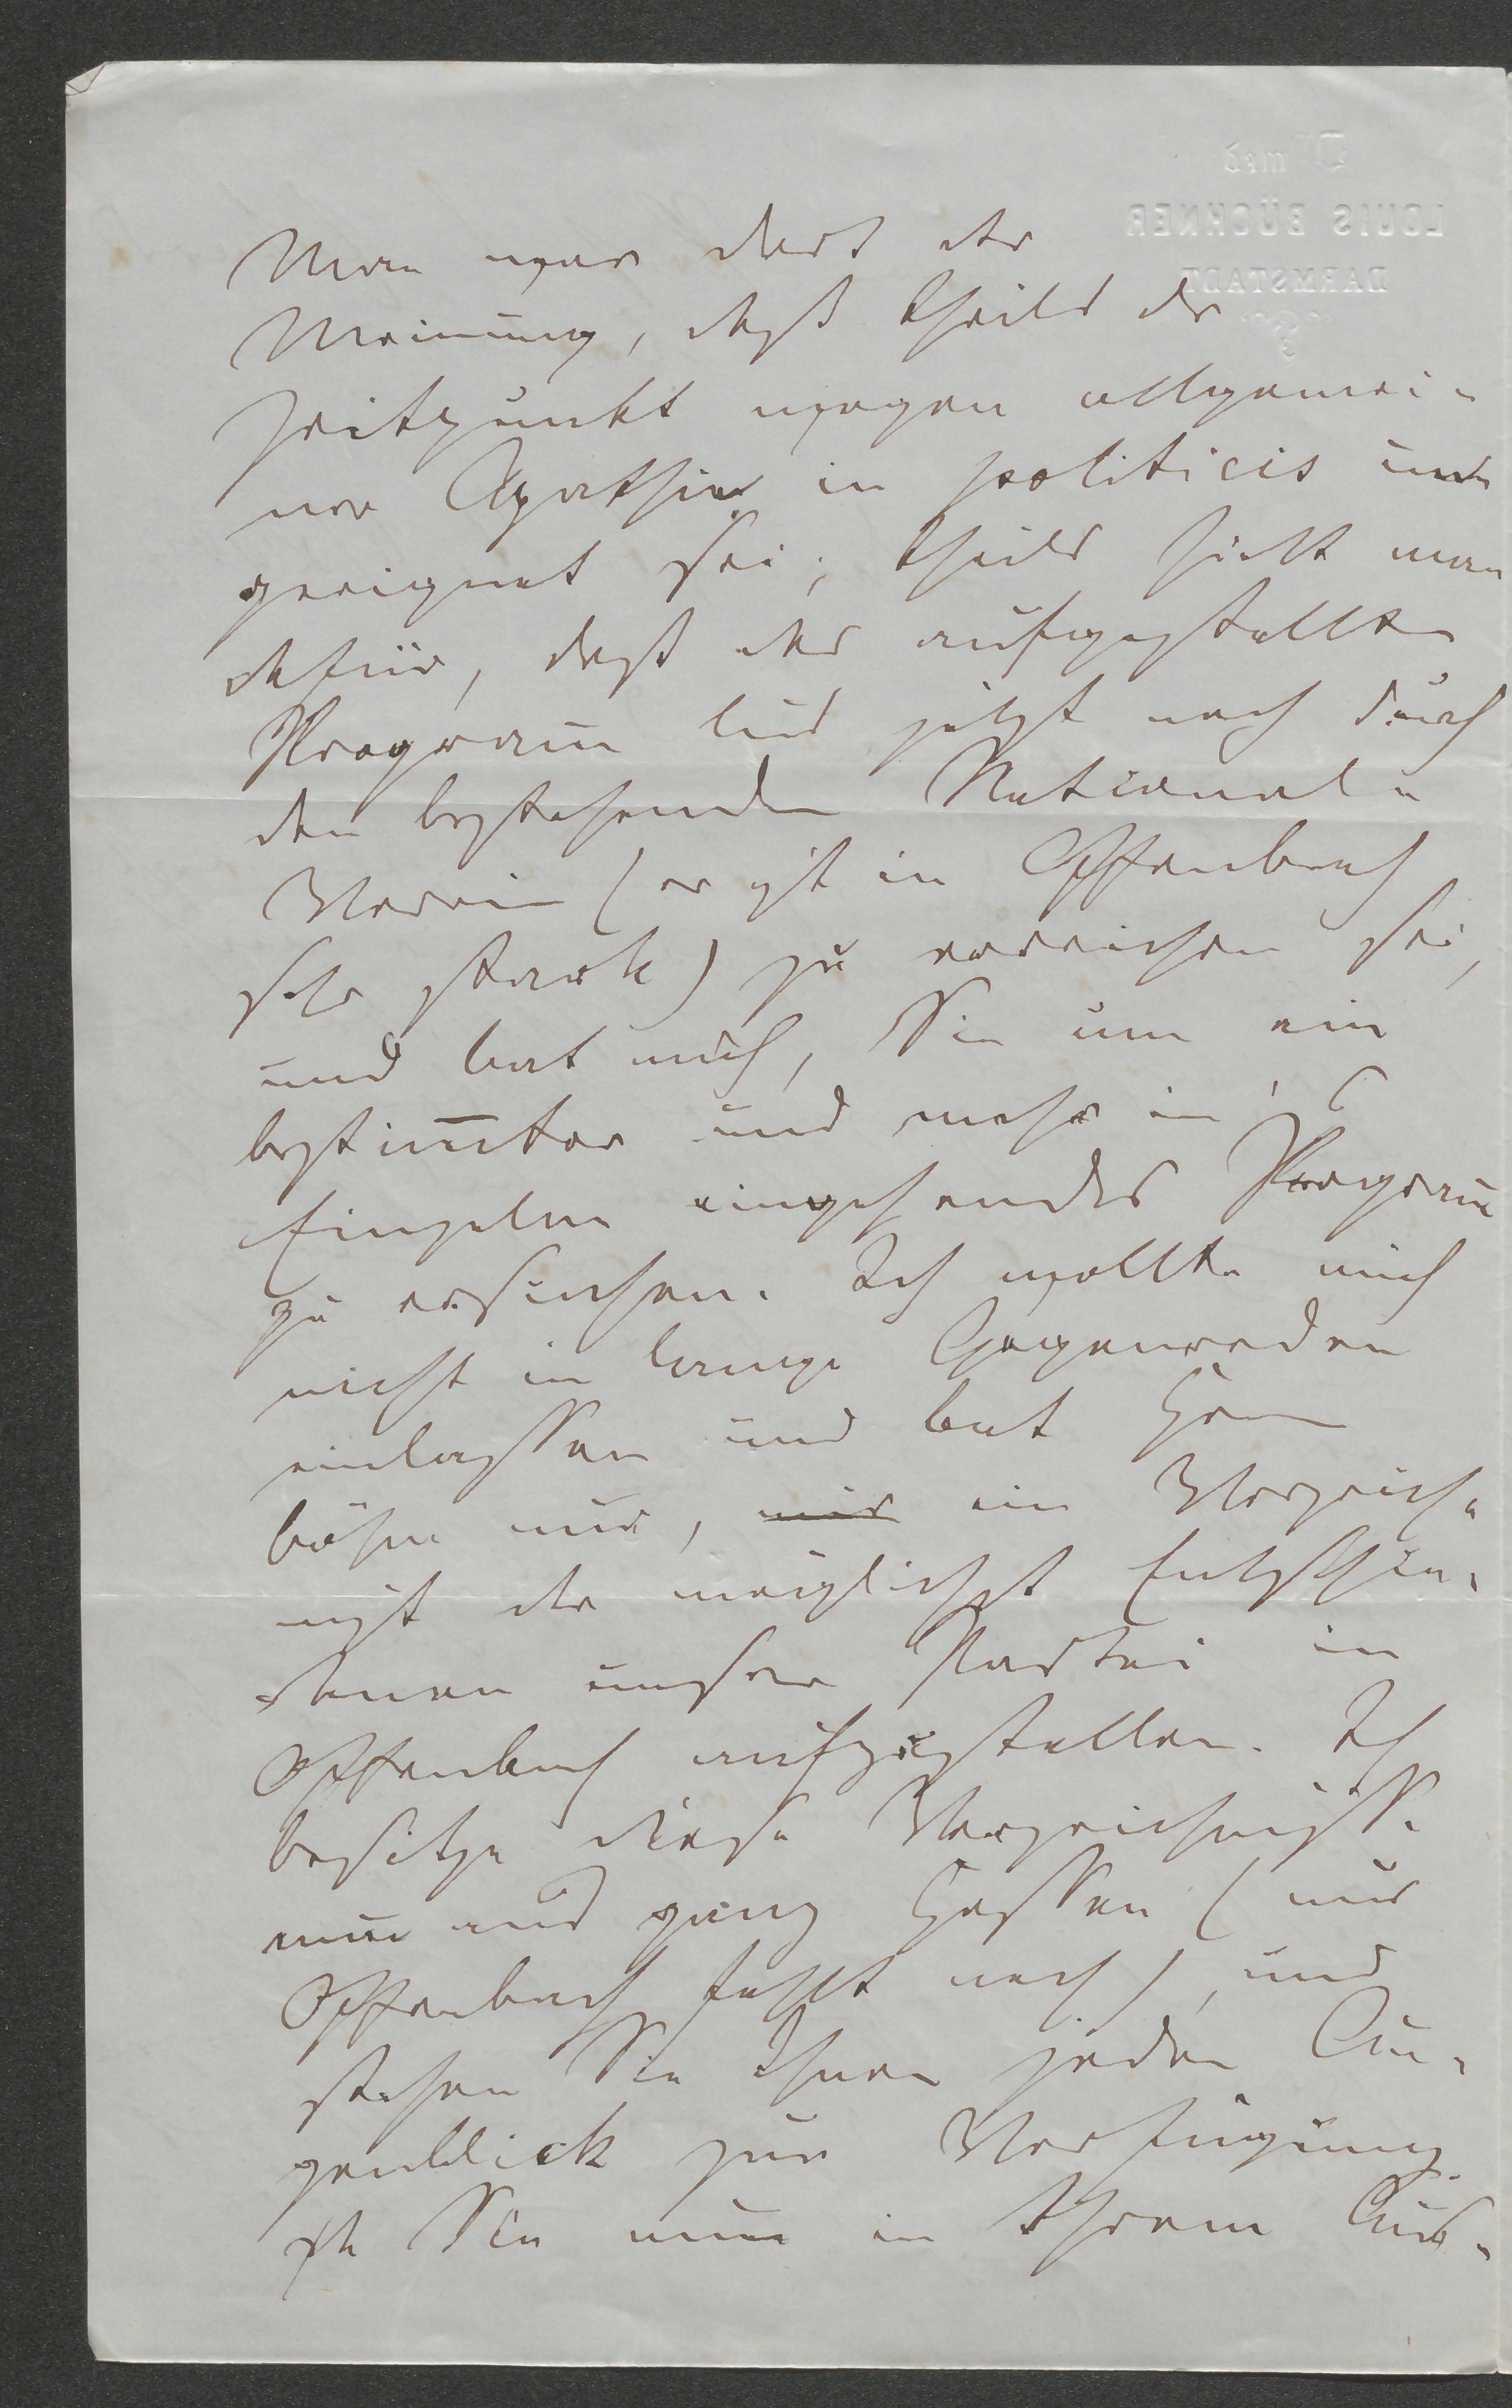 Dr med
LOUIS BÜCHNER
DARMSTADT
Man war dort der
Meinung, daß theils der
Zeitpunkt wegen allgemei-
ner Apathie in politicis un
geeignet sei; theils hielt man
dafür, daß das aufgestellte
Programm bis jetzt noch durch
den bestehenden National-
Verein (er ist in Offenbach
sehr stark) zu erreichen sei,
und bat mich, Sie um ein
bestimmtes und mehr in's
Einzelne eingehendes Programm
zu ersuchen. Ich wollte mich
nicht in lange Gegenreden
einlassen und bat Herrn
Böhm nur, mir ein Verzeich-
niß der möglichst Entschie-
denen unsrer Partei in
Offenbach aufzustellen. Ich
besitze diese Verzeichnisse
nun aus ganz Hessen (nur
Offenbach fehlt noch), und
stehen Sie Ihnen jeden Au-
genblick zur Verfügung.
Sie nun in Ihrem Aus-